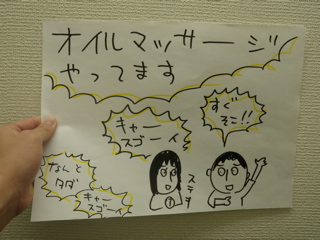 オイルマッサージ
やってます
キャー
スゴーイ
すぐ
そこ!!
ステキ
なんと
タダ
キャー
スゴーイ